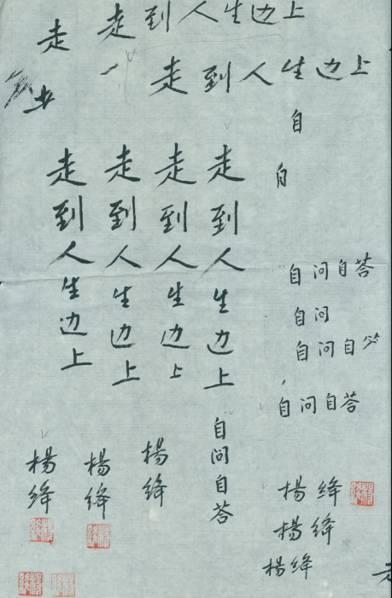 走到人生边上
走
走到人生边上
自
自
走到人生边上
走到人生边上
走到人生边上
走到人生边上
自问自答
自问自答
自问
自问自
自问自答
杨绛
杨绛
杨绛
楊绛
楊绛
楊绛